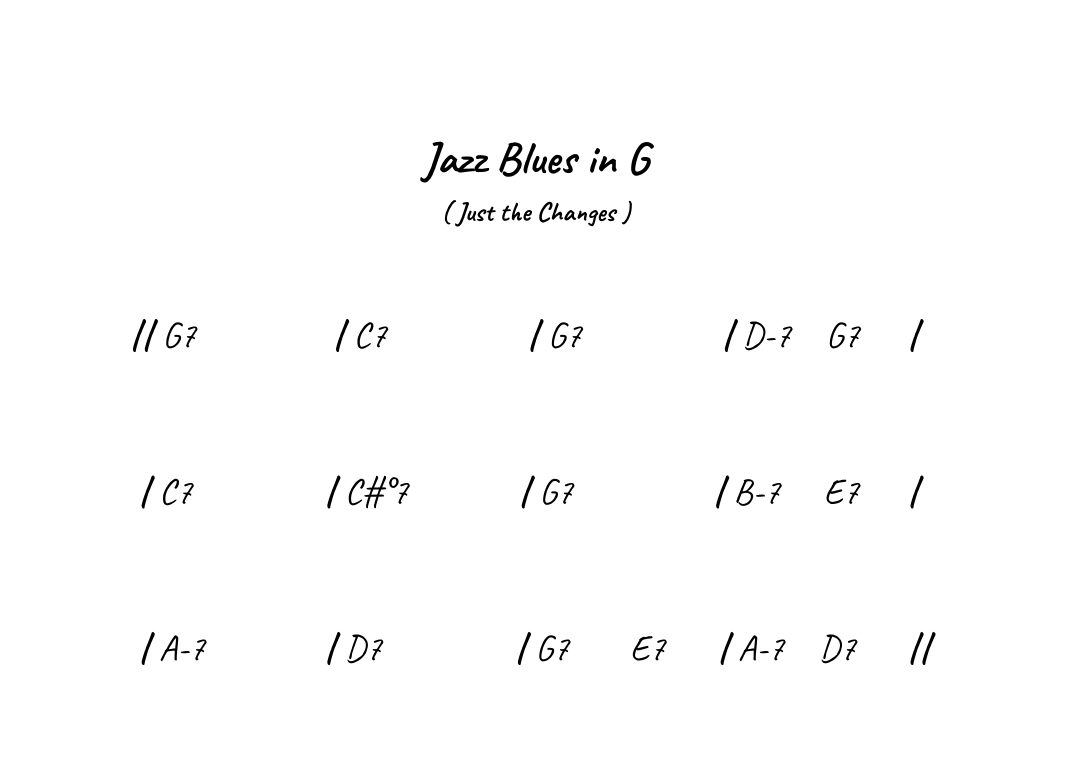 Jazz Blues in G
( Just the Changes )
|| G7 | C7 | G7 | D-7 G7 |
| C7 | C#°7 | G7 | B-7 E7 |
| A-7 | D7 | G7 E7 | A-7 D7 ||